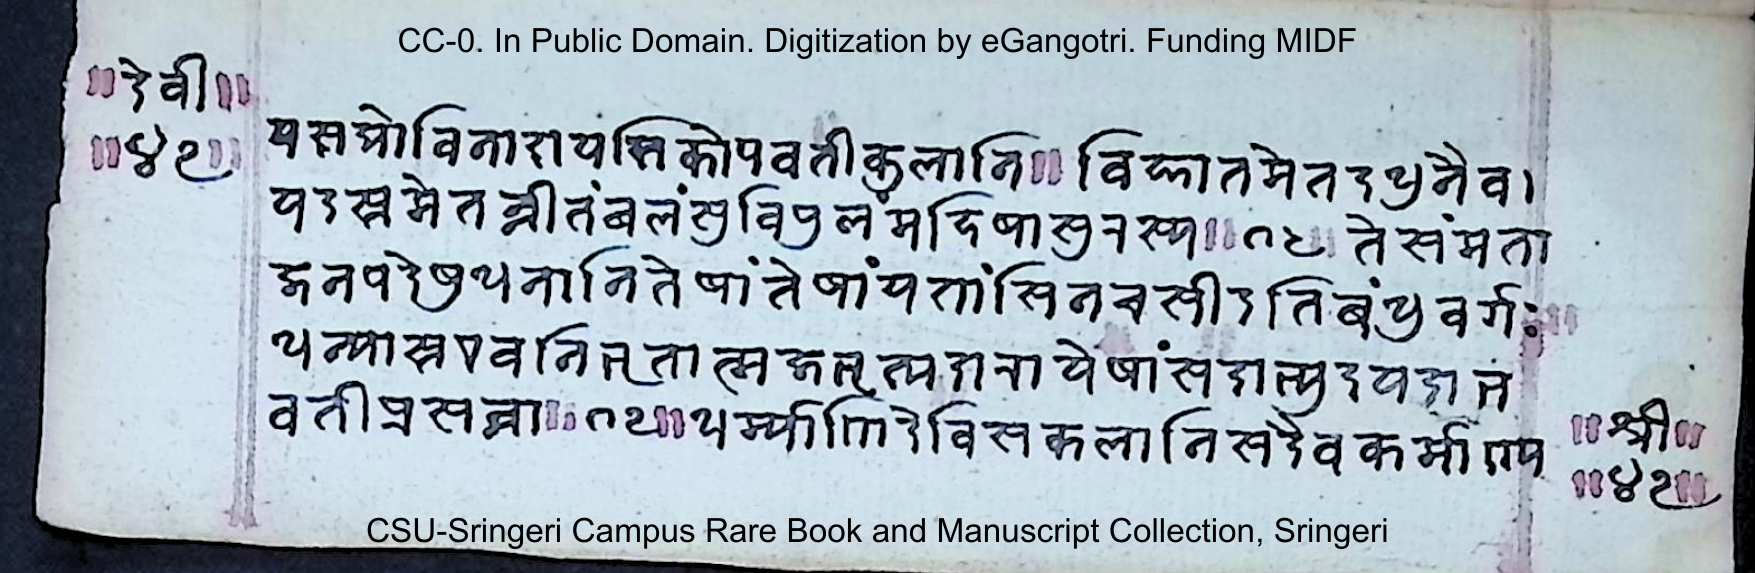 CC-0. In Public Domain. Digitization by eGangotri. Funding MIDF
॥देवी॥
॥४९॥
यसद्योविनाशयसिकोपवतीकुलानि॥ विज्ञातमेतदधुनैव।
यदस्तमेतन्नीतंबलंसुविपुलंमहिषासुरस्य॥१४॥ तेसंमता
जनपदेषुधनानितेषांतेषांयशांसिनचसीदतिबंधुवर्गः
धन्यास्तएवनिभृतात्मजभृत्यदारायेषांसदाभ्युदयदाभ
वतीप्रसन्ना॥१५॥धर्म्याणिदेविसकलानिसदैवकर्माण्य
॥श्री॥
॥४९॥
CSU-Sringeri Campus Rare Book and Manuscript Collection, Sringeri